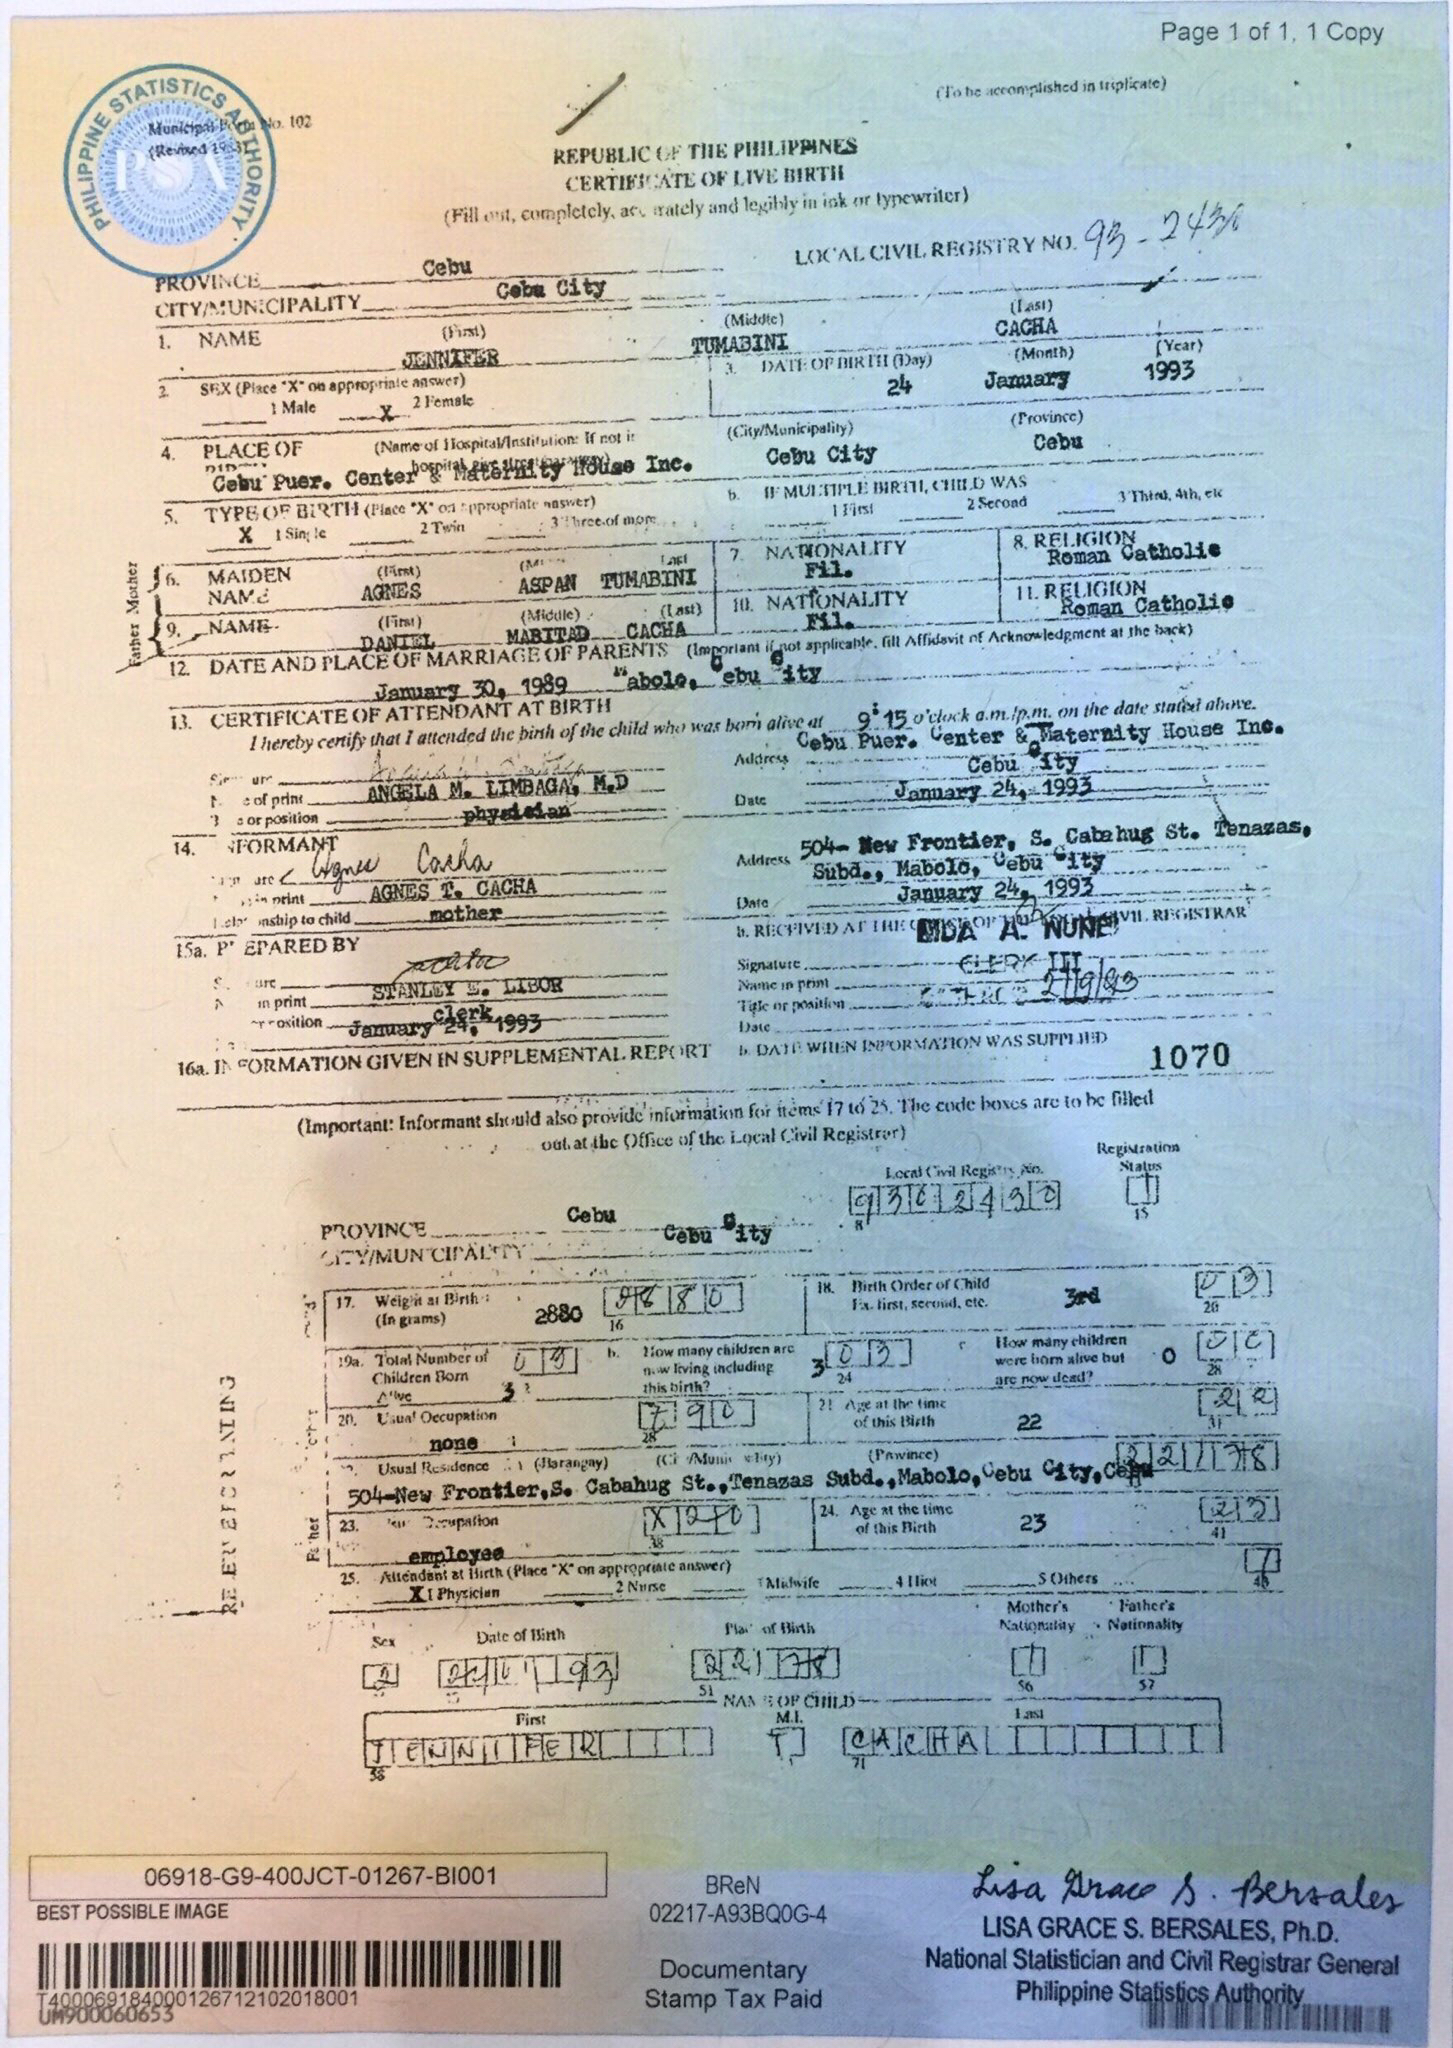 Page 1 of 1, 1 Copy
(To be accomplished in triplicate)
PHILIPPINE STATISTICS AUTHORITY
PSA
Municipal Form No. 102
(Revised
REPUBLIC OF THE PHILIPPINES
CERTIFICATE OF LIVE BIRTH
(Fill out, completely, accurately and legibly in ink or typewriter)
LOCAL CIVIL REGISTRY NO. 93-2430
PROVINCE Cebu
CITY/MUNICIPALITY Cebu City
1. NAME (First) (Middle) (Last)
JENNIFER TUMABINI CACHA
2. SEX (Place "X" on appropriate answer) 3. DATE OF BIRTH (Day) (Month) (Year)
1 Male X 2 Female 24 January 1993
4. PLACE OF (Name of Hospital/Institution: If not in (City/Municipality) (Province)
hospital, give street/barangay) Cebu City Cebu
Cebu Puer. Center & Maternity House Inc.
5. TYPE OF BIRTH (Place "X" on appropriate answer) b. IF MULTIPLE BIRTH, CHILD WAS
X 1 Single 2 Twin 3 Three or more 1 First 2 Second 3 Third, 4th, etc
Mother
6. MAIDEN NAME (First) Last 7. NATIONALITY 8. RELIGION
AGNES ASPAN TUMABINI Fil. Roman Catholic
Father
9. NAME (First) (Middle) (Last) 10. NATIONALITY 11. RELIGION
DANIEL MABITAD CACHA Fil. Roman Catholic
12. DATE AND PLACE OF MARRIAGE OF PARENTS (Important if not applicable, fill Affidavit of Acknowledgment at the back)
January 30, 1989 Mabolo, Cebu City
13. CERTIFICATE OF ATTENDANT AT BIRTH
I hereby certify that I attended the birth of the child who was born alive at 9:15 o'clock a.m./p.m. on the date stated above.
Address Cebu Puer. Center & Maternity House Inc.
Signature Cebu City
Name of print ANGELA M. LIMBAGA, M.D Date January 24, 1993
or position physician
14. INFORMANT
Agnes Cacha Address 504- New Frontier, S. Cabahug St. Tenazas,
Subd., Mabolo, Cebu City
in print AGNES T. CACHA Date January 24, 1993
Relationship to child mother
15a. PREPARED BY b. RECEIVED AT THE OFFICE OF THE LOCAL CIVIL REGISTRAR
Signature
in print STANLEY E. LIBOR Name in print CLERK III
position clerk Title or position 2/9/93
January 24, 1993 Date
16a. INFORMATION GIVEN IN SUPPLEMENTAL REPORT b. DATE WHEN INFORMATION WAS SUPPLIED
1070
(Important: Informant should also provide information for items 17 to 25. The code boxes are to be filled
out at the Office of the Local Civil Registrar)
Local Civil Registry No. Registration Status
9302430 1
8 15
PROVINCE Cebu
CITY/MUNICIPALITY Cebu City
17. Weight at Birth (In grams) 2880 2880 18. Birth Order of Child Ex. first, second, etc. 3rd 03
16 20
19a. Total Number of Children Born Alive 3 03 b. How many children are now living including this birth? 3 03 How many children were born alive but are now dead? 0 00
24 28
20. Usual Occupation none 790 21 Age at the time of this Birth 22 22
28 31
Usual Residence (Barangay) (Province) 22178
504-New Frontier,S. Cabahug St.,Tenazas Subd.,Mabolo,Cebu City,Cebu
Father
23. Occupation employee X20 24. Age at the time of this Birth 23 23
38 41
25. Attendant at Birth (Place "X" on appropriate answer) 1
X 1 Physician 2 Nurse Midwife 4 Hilot 5 Others
Sex Date of Birth Place of Birth Mother's Nationality Father's Nationality
2 2401 93 22178 1 1
51 56 57
NAME OF CHILD
First M.I. Last
JENNIFER T CACHA
58 71
06918-G9-400JCT-01267-BI001
BEST POSSIBLE IMAGE
T400069184000126712102018001
UM900060653
BReN
02217-A93BQ0G-4
Documentary
Stamp Tax Paid
Lisa Grace S. Bersales
LISA GRACE S. BERSALES, Ph.D.
National Statistician and Civil Registrar General
Philippine Statistics Authority